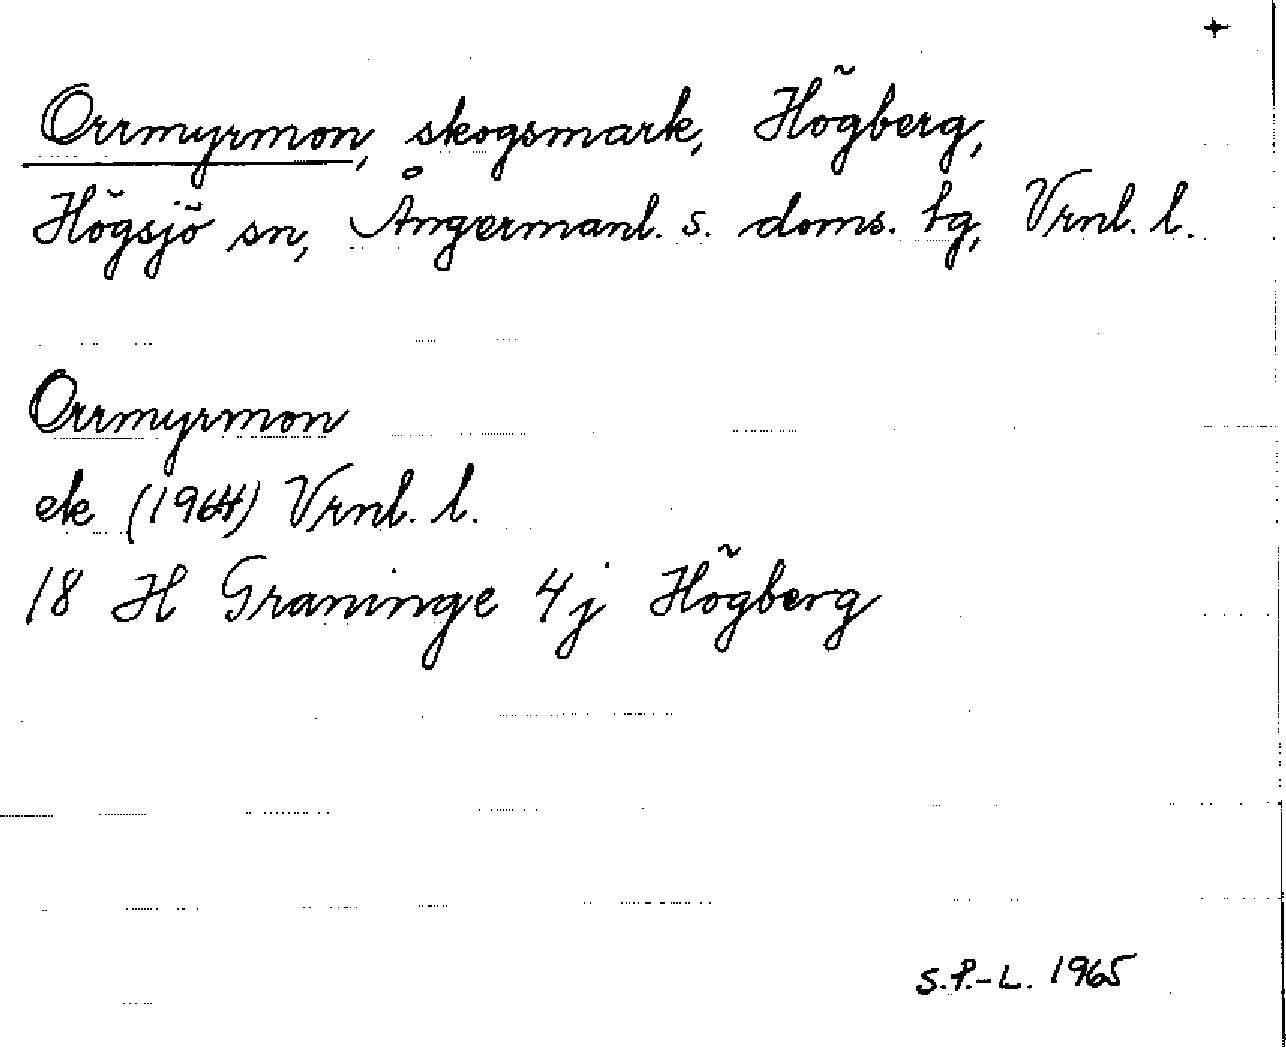 Orrmyrmon, skogsmark, Högberg,
Högsjö sn, Ångermanl. s. doms. tg, Vrnl. l.
Orrmyrmon
ek (1964) Vrnl. l.
18 H Graninge 4j Högberg
S.P.-L. 1965